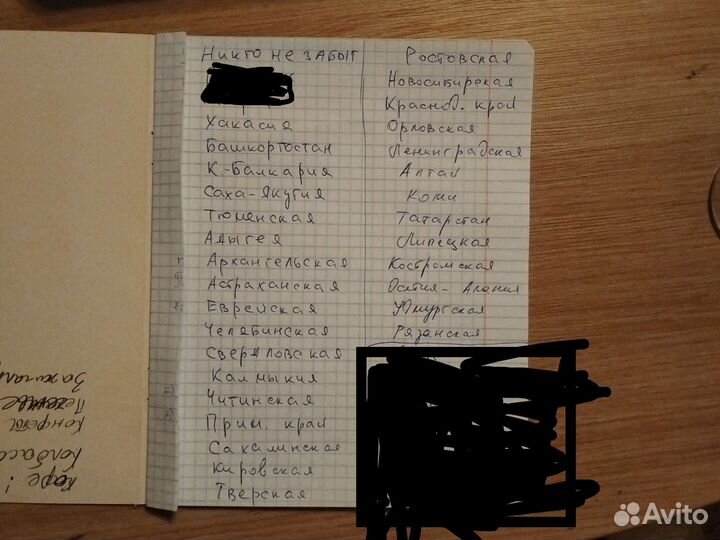 Никто не забыт
Хакасия
Башкортостан
К-Балкария
Саха-Якутия
Тюменская
Адыгея
Архангельская
Астраханская
Еврейская
Челябинская
Свердловская
Калмыкия
Читинская
Прим. край
Сахалинская
Кировская
Тверская
Ростовская
Новосибирская
Краснод. край
Орловская
Ленинградская
Алтай
Коми
Татарстан
Липецкая
Костромская
Осетия-Алания
Удмургская
Рязанская
Кофе!
Колбаса
Конфеты
Печенье
Зажигал
Avito